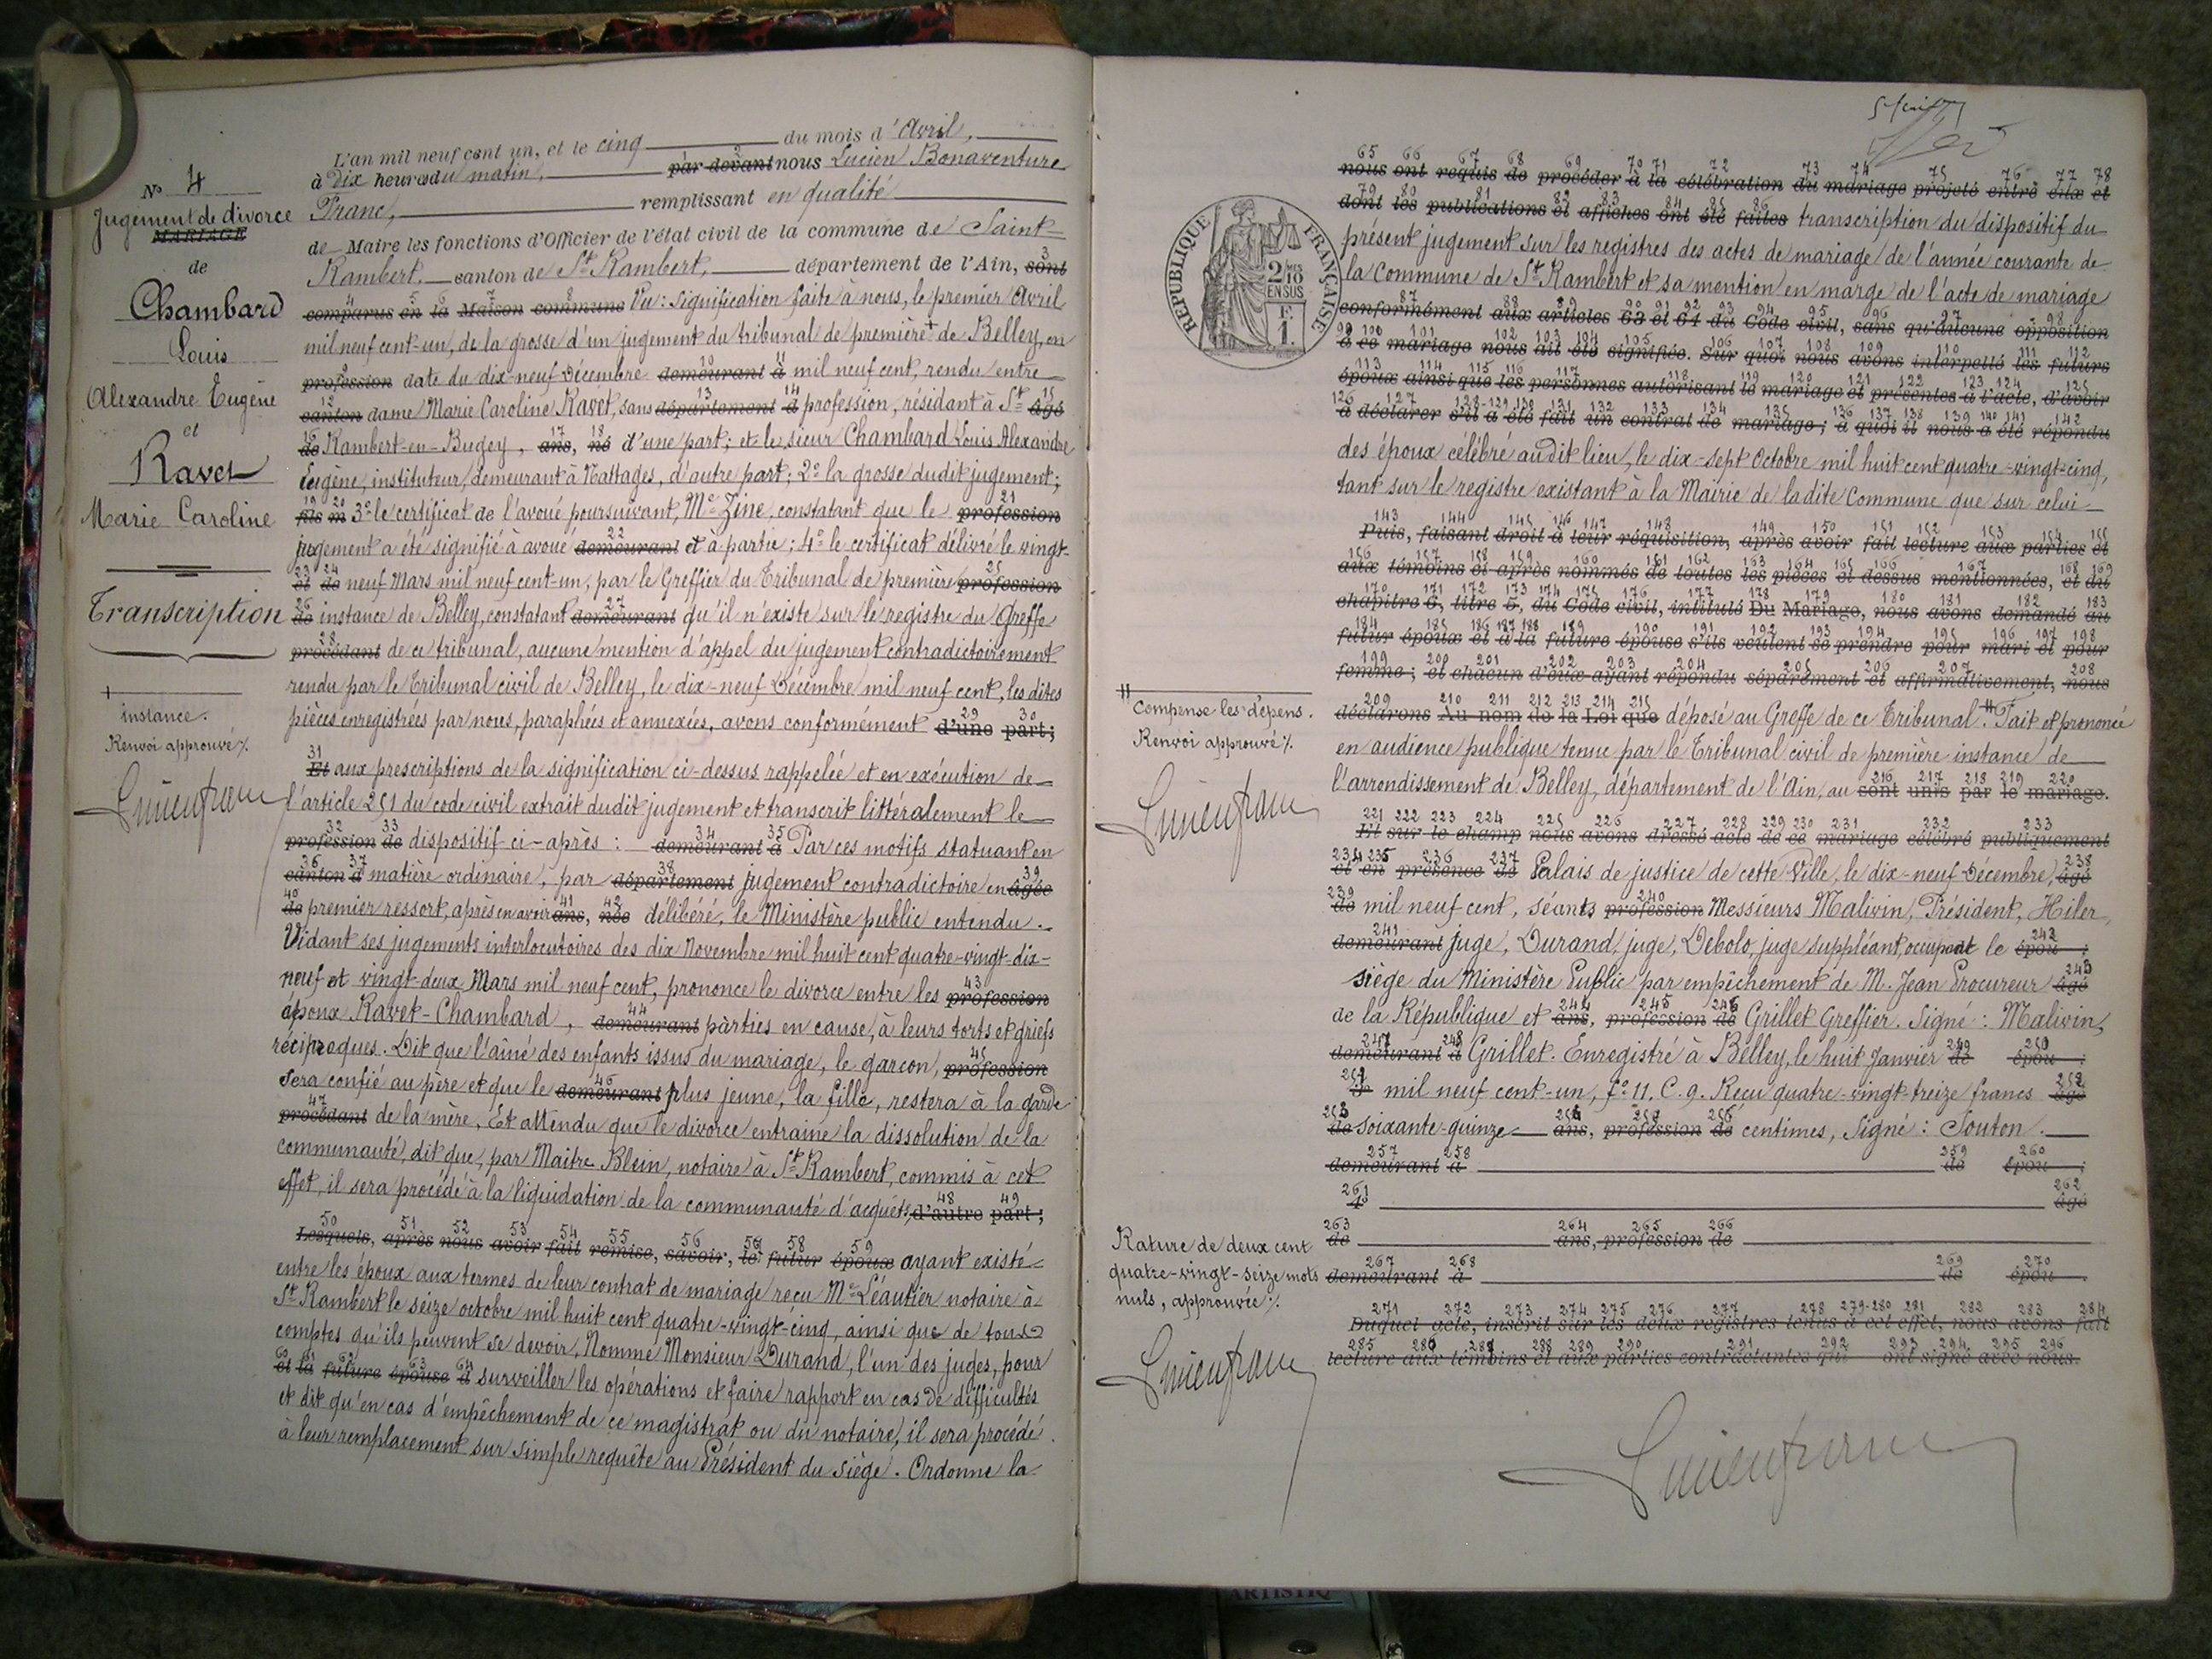 N° 4
Jugement de divorce
MARIAGE
de
Chambard
Louis
Alexandre Eugène
et
Ravet
Marie Caroline
Transcription
instance.
Renvoi approuvé %.
L'an mil neuf cent un, et le cinq du mois d'Avril,
à dix heures du matin, par devant nous Lucien Bonaventure
Franc, remplissant en qualité
de Maire les fonctions d'Officier de l'état civil de la commune de Saint-
Rambert, canton de St Rambert, département de l'Ain, sont
comparus en la Maison commune Vu: signification faite à nous, le premier Avril
mil neuf cent-un, de la grosse d'un jugement du tribunal de première + de Belley, en
profession date du dix-neuf Décembre demeurant à mil neuf cent, rendu entre
canton dame Marie Caroline Ravet, sans département d profession, résidant à St âgé
de Rambert-en-Bugey, ans, né d'une part; et le sieur Chambard Louis Alexandre
Eugène, instituteur, demeurant à Nattages, d'autre part; 2° la grosse dudit jugement;
fils m 3° le certificat de l'avoué poursuivant, Me Zine, constatant que le profession
jugement a été signifié à avoué demeurant et à partie; 4° le certificat délivré le vingt-
et de neuf Mars mil neuf cent-un, par le Greffier du Tribunal de première profession
de instance de Belley, constatant demeurant qu'il n'existe sur le registre du Greffe
procédant de ce tribunal, aucune mention d'appel du jugement contradictoirement
rendu par le Tribunal civil de Belley, le dix-neuf Décembre mil neuf cent, les dites
pièces enregistrées par nous, paraphées et annexées, avons conformément d'une part;
Et aux prescriptions de la signification ci-dessus rappelée et en exécution de
l'article 251 du code civil extrait dudit jugement et transcrit littéralement le
profession de dispositif ci-après : demeurant à Par ces motifs statuant en
canton d matière ordinaire, par département jugement contradictoire en âgée
de premier ressort, après en avoir ans, née délibéré, le Ministère public entendu.
Vidant ses jugements interlocutoires des dix Novembre mil huit cent quatre-vingt-dix-
neuf et vingt-deux Mars mil neuf cent, prononce le divorce entre les profession
époux Ravet-Chambard, demeurant parties en cause, à leurs torts et griefs
réciproques. Dit que l'aîné des enfants issus du mariage, le garçon, profession
sera confié au père et que le demeurant plus jeune, la fille, restera à la garde
procédant de la mère, Et attendu que le divorce entraine la dissolution de la
communauté, dit que, par Maître Blein, notaire à St Rambert, commis à cet
effet, il sera procédé à la liquidation de la communauté d'acquêts, d'autre part;
Lesquels, après nous avoir fait remise, savoir, le futur époux ayant existé
entre les époux aux termes de leur contrat de mariage reçu Me Léautier notaire à
St Rambert le seize octobre mil huit cent quatre-vingt-cinq, ainsi que de tous
comptes qu'ils peuvent se devoir, Nomme Monsieur Durand, l'un des juges, pour
et la future épouse d surveiller les opérations et faire rapport en cas de difficultés
et dit qu'en cas d'empêchement de ce magistrat ou du notaire, il sera procédé
à leur remplacement sur simple requête au Président du siège. Ordonne la
RÉPUBLIQUE FRANÇAISE
2/10 EN SUS
F. 1.
nous ont requis de procéder à la célébration du mariage projeté entre eux et
dont les publications et affiches ont été faites transcription du dispositif du
présent jugement sur les registres des actes de mariage de l'année courante de
la Commune de St Rambert et sa mention en marge de l'acte de mariage
conformément aux articles 63 et 64 du Code civil, sans qu'aucune opposition
à ce mariage nous ait été signifiée. Sur quoi nous avons interpellé les futurs
époux ainsi que les personnes autorisant le mariage et présentes à l'acte, d'avoir
à déclarer s'il a été fait un contrat de mariage; à quoi il nous a été répondu
des époux célébré audit lieu, le dix-sept Octobre mil huit cent quatre-vingt-cinq,
tant sur le registre existant à la Mairie de ladite Commune que sur celui
Puis, faisant droit à leur réquisition, après avoir fait lecture aux parties et
aux témoins ci-après nommés de toutes les pièces ci dessus mentionnées, et du
chapitre 6, titre 5, du Code civil, intitulé Du Mariage, nous avons demandé au
futur époux et à la future épouse s'ils veulent se prendre pour mari et pour
femme; et chacun d'eux ayant répondu séparément et affirmativement, nous
déclarons Au nom de la Loi que déposé au Greffe de ce Tribunal. # Fait et prononcé
en audience publique tenue par le Tribunal civil de première instance de
l'arrondissement de Belley, département de l'Ain, au sont unis par le mariage.
Et sur le champ nous avons dressé acte de ce mariage célébré publiquement
et en présence de Palais de justice de cette Ville, le dix-neuf Décembre, âgé
de mil neuf cent, séants profession Messieurs Malivin, Président, Hiler,
demeurant juge, Durand, juge, Debolo, juge suppléant, occupant le épou ;
siège du Ministère Public par empêchement de M. Jean Procureur âgé
de la République et ans, profession de Grillet Greffier. Signé: Malivin,
demeurant à Grillet. Enregistré à Belley, le huit Janvier de épou ;
3° mil neuf cent-un, f° 11. C. 9. Reçu quatre-vingt-treize francs âgé
de soixante-quinze ans, profession de centimes, Signé: Souton.
demeurant à de épou ;
4° âgé
de ans, profession de
demeurant à de épou .
Duquel acte, inscrit sur les deux registres tenus à cet effet, nous avons fait
lecture aux témoins et aux parties contractantes qui ont signé avec nous.
# Compense les dépens.
Renvoi approuvé %.
Rature de deux cent
quatre-vingt-seize mots
nuls, approuvée %.
Lucien Franc